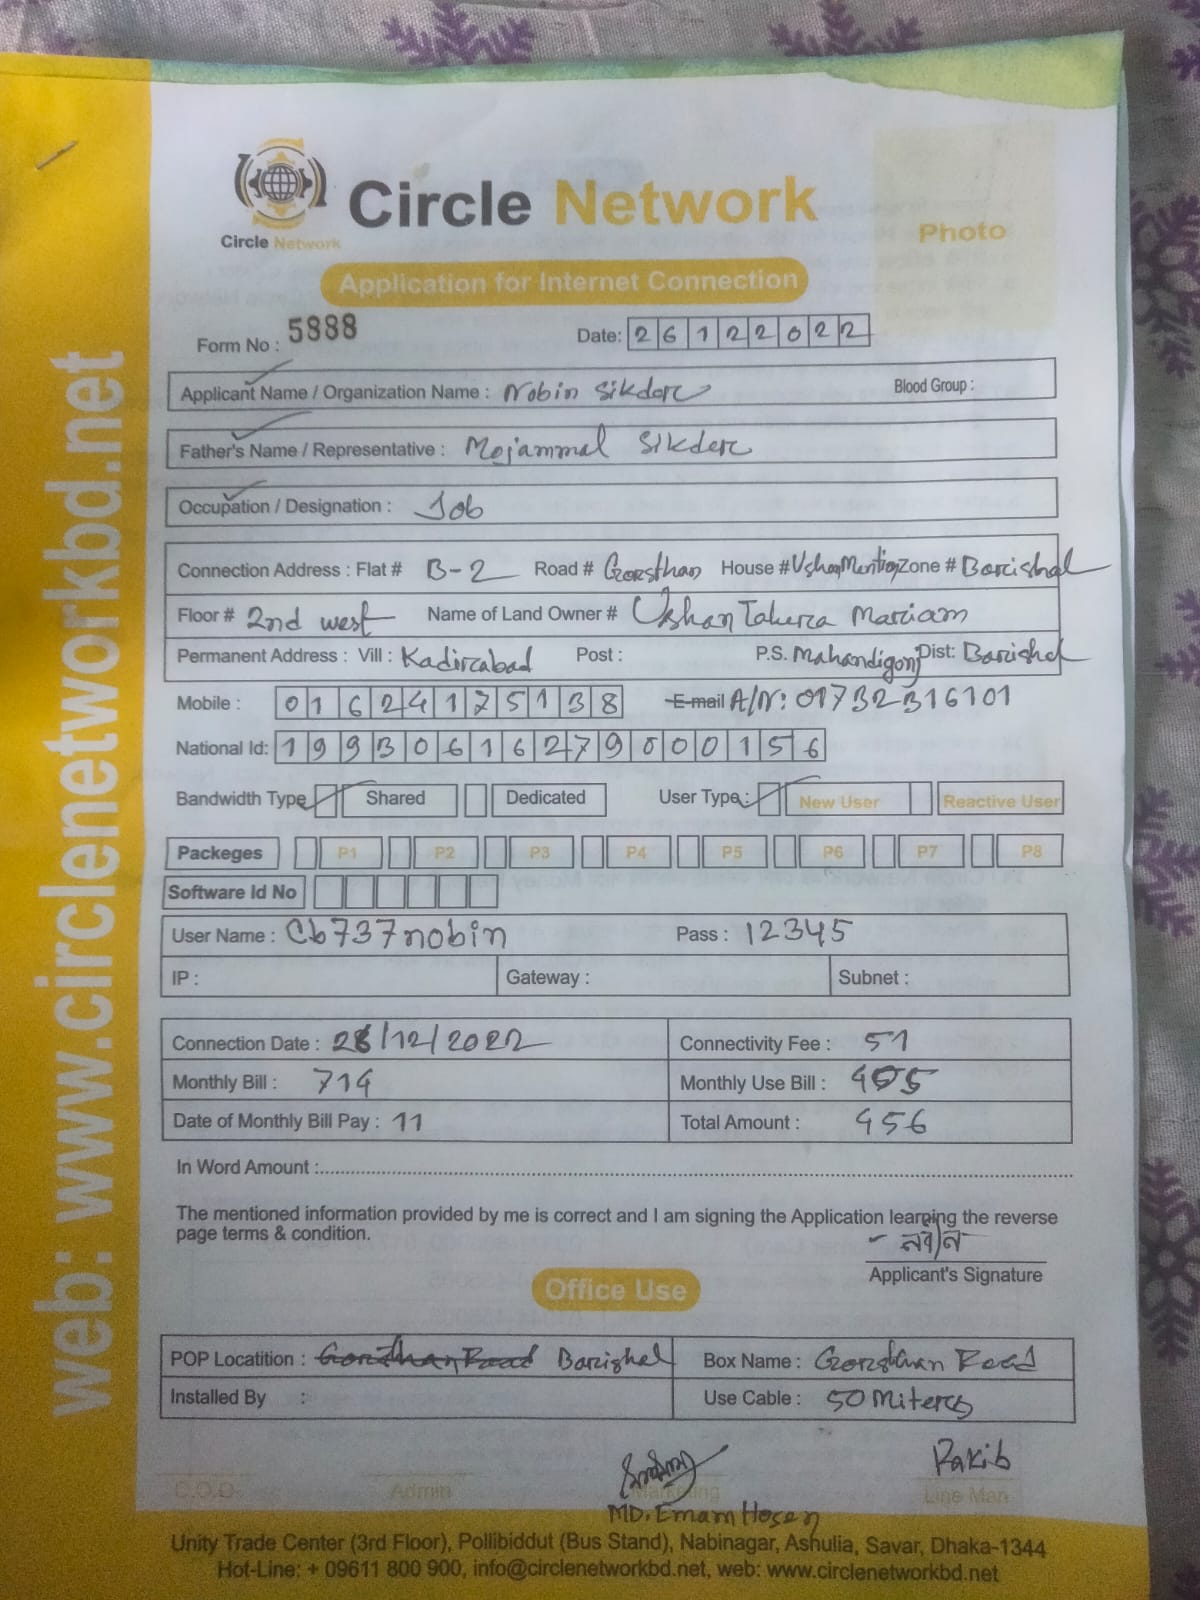 web: www.circlenetworkbd.net
Circle Network
Circle Network
Photo
Application for Internet Connection
Form No : 5888
Date: 26122022
Applicant Name / Organization Name : Nobin Sikder Blood Group :
Father's Name / Representative : Mojammal Sikder
Occupation / Designation : Job
Connection Address : Flat # B-2 Road # Gorsthan House # Zone # Barishal
Floor # 2nd west Name of Land Owner # Ushan Tahera Mariam
Permanent Address : Vill : Kadirabad Post : P.S. Mahandigonj Dist: Barishal
Mobile : 01624175138 E-mail A/N: 01732316101
National Id: 19930616279000156
Bandwidth Type Shared Dedicated User Type : New User Reactive User
Packeges P1 P2 P3 P4 P5 P6 P7 P8
Software Id No
User Name : Cb737nobin Pass : 12345
IP : Gateway : Subnet :
Connection Date : 28/12/2022 Connectivity Fee : 51
Monthly Bill : 714 Monthly Use Bill : 405
Date of Monthly Bill Pay : 11 Total Amount : 456
In Word Amount :
The mentioned information provided by me is correct and I am signing the Application learning the reverse
page terms & condition.
নবীন
Applicant's Signature
Office Use
POP Locatition : Gorsthan Road Barishal Box Name : Gorsthan Road
Installed By : Use Cable : 50 Miters
Rakib
C.O.D Admin Marketing Line Man
MD. Emam Hosen
Unity Trade Center (3rd Floor), Pollibiddut (Bus Stand), Nabinagar, Ashulia, Savar, Dhaka-1344
Hot-Line: + 09611 800 900, info@circlenetworkbd.net, web: www.circlenetworkbd.net